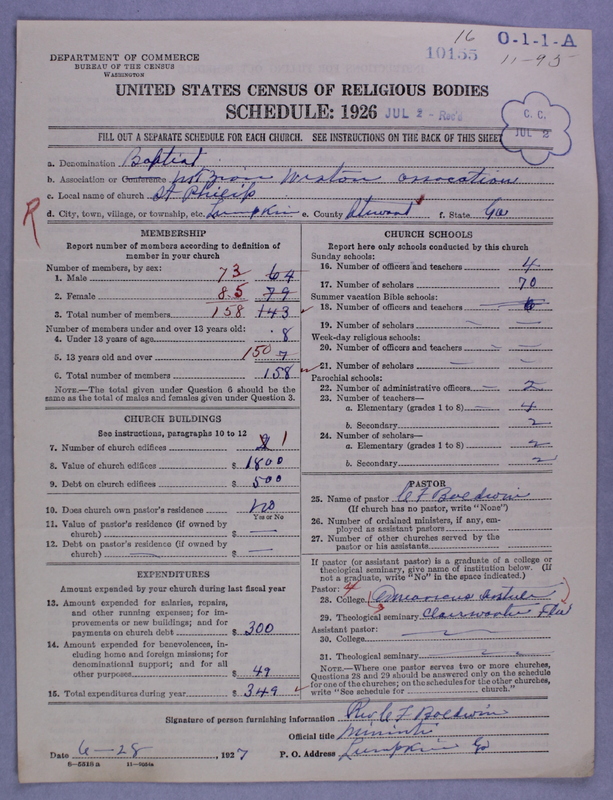 16
10155
O-1-1-A
11-95
DEPARTMENT OF COMMERCE
BUREAU OF THE CENSUS
WASHINGTON
UNITED STATES CENSUS OF RELIGIOUS BODIES
SCHEDULE: 1926
JUL 2 - Rec'd
C. C.
JUL 2
FILL OUT A SEPARATE SCHEDULE FOR EACH CHURCH. SEE INSTRUCTIONS ON THE BACK OF THIS SHEET
a. Denomination Baptist
b. Association or Conference Zion
c. Local name of church St Philip
R
d. City, town, village, or township, etc. Lumpkin e. County Stewart f. State Ga
MEMBERSHIP
Report number of members according to definition of
member in your church
Number of members, by sex:
1. Male 73 64
2. Female 85 79
3. Total number of members 158 143
Number of members under and over 13 years old:
4. Under 13 years of age 8
5. 13 years old and over 150 7
6. Total number of members 158
NOTE.—The total given under Question 6 should be the
same as the total of males and females given under Question 3.
CHURCH BUILDINGS
See instructions, paragraphs 10 to 12
7. Number of church edifices 1
8. Value of church edifices $ 1800
9. Debt on church edifices $ 500
10. Does church own pastor's residence No
Yes or No
11. Value of pastor's residence (if owned by
church) $ —
12. Debt on pastor's residence (if owned by
church) $ —
EXPENDITURES
Amount expended by your church during last fiscal year
13. Amount expended for salaries, repairs,
and other running expenses; for im-
provements or new buildings; and for
payments on church debt $ 300
14. Amount expended for benevolences, in-
cluding home and foreign missions; for
denominational support; and for all
other purposes $ 49
15. Total expenditures during year $ 349
CHURCH SCHOOLS
Report here only schools conducted by this church
Sunday schools:
16. Number of officers and teachers 4
17. Number of scholars 70
Summer vacation Bible schools:
18. Number of officers and teachers 6
19. Number of scholars —
Week-day religious schools:
20. Number of officers and teachers —
21. Number of scholars —
Parochial schools:
22. Number of administrative officers 2
23. Number of teachers—
a. Elementary (grades 1 to 8) 4
b. Secondary 2
24. Number of scholars—
a. Elementary (grades 1 to 8) 2
b. Secondary 2
PASTOR
25. Name of pastor C F Boldwin
(If church has no pastor, write "None")
26. Number of ordained ministers, if any, em-
ployed as assistant pastors
27. Number of other churches served by the
pastor or his assistants
If pastor (or assistant pastor) is a graduate of a college or
theological seminary, give name of institution below. (If
not a graduate, write "No" in the space indicated.)
Pastor: 4
28. College Americus
29. Theological seminary
Assistant pastor:
30. College
31. Theological seminary
NOTE.—Where one pastor serves two or more churches,
Questions 28 and 29 should be answered only on the schedule
for one of the churches; on the schedules for the other churches,
write "See schedule for church."
Signature of person furnishing information Rev C F Boldwin
Official title
Date 6—28 1927 P. O. Address Lumpkin Ga
8—5510 a